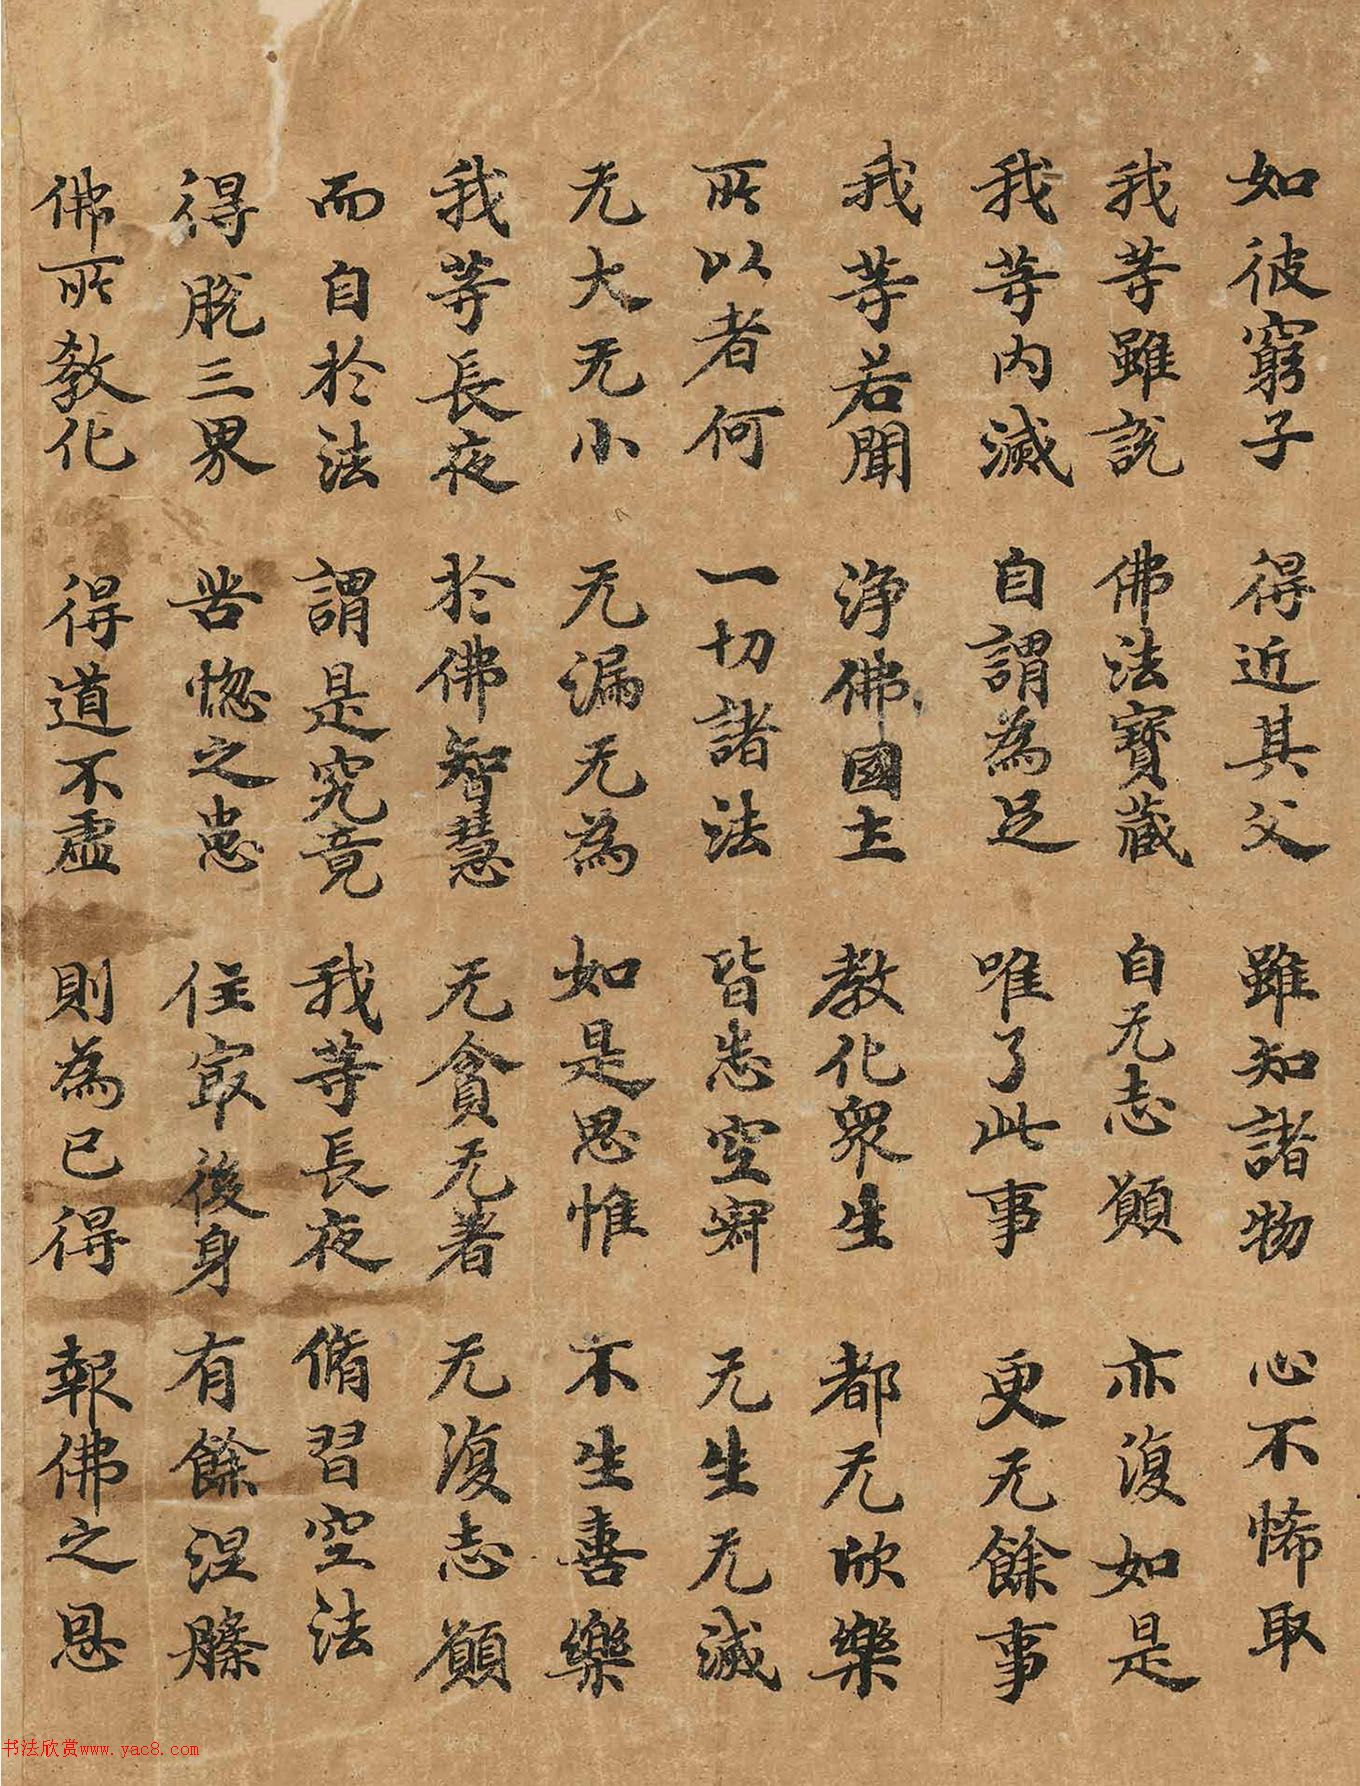 如彼窮子 得近其父 雖知諸物 心不悕取
我等雖說 佛法寶藏 自无志願 亦復如是
我等內滅 自謂為足 唯了此事 更无餘事
我等若聞 淨佛國土 教化衆生 都无欣樂
所以者何 一切諸法 皆悉空寂 无生无滅
无大无小 无漏无為 如是思惟 不生喜樂
我等長夜 於佛智慧 无貪无著 无復志願
而自於法 謂是究竟 我等長夜 脩習空法
得脫三界 苦惱之患 住冣後身 有餘涅槃
佛所教化 得道不虛 則為已得 報佛之恩
书法欣赏www.yac8.com